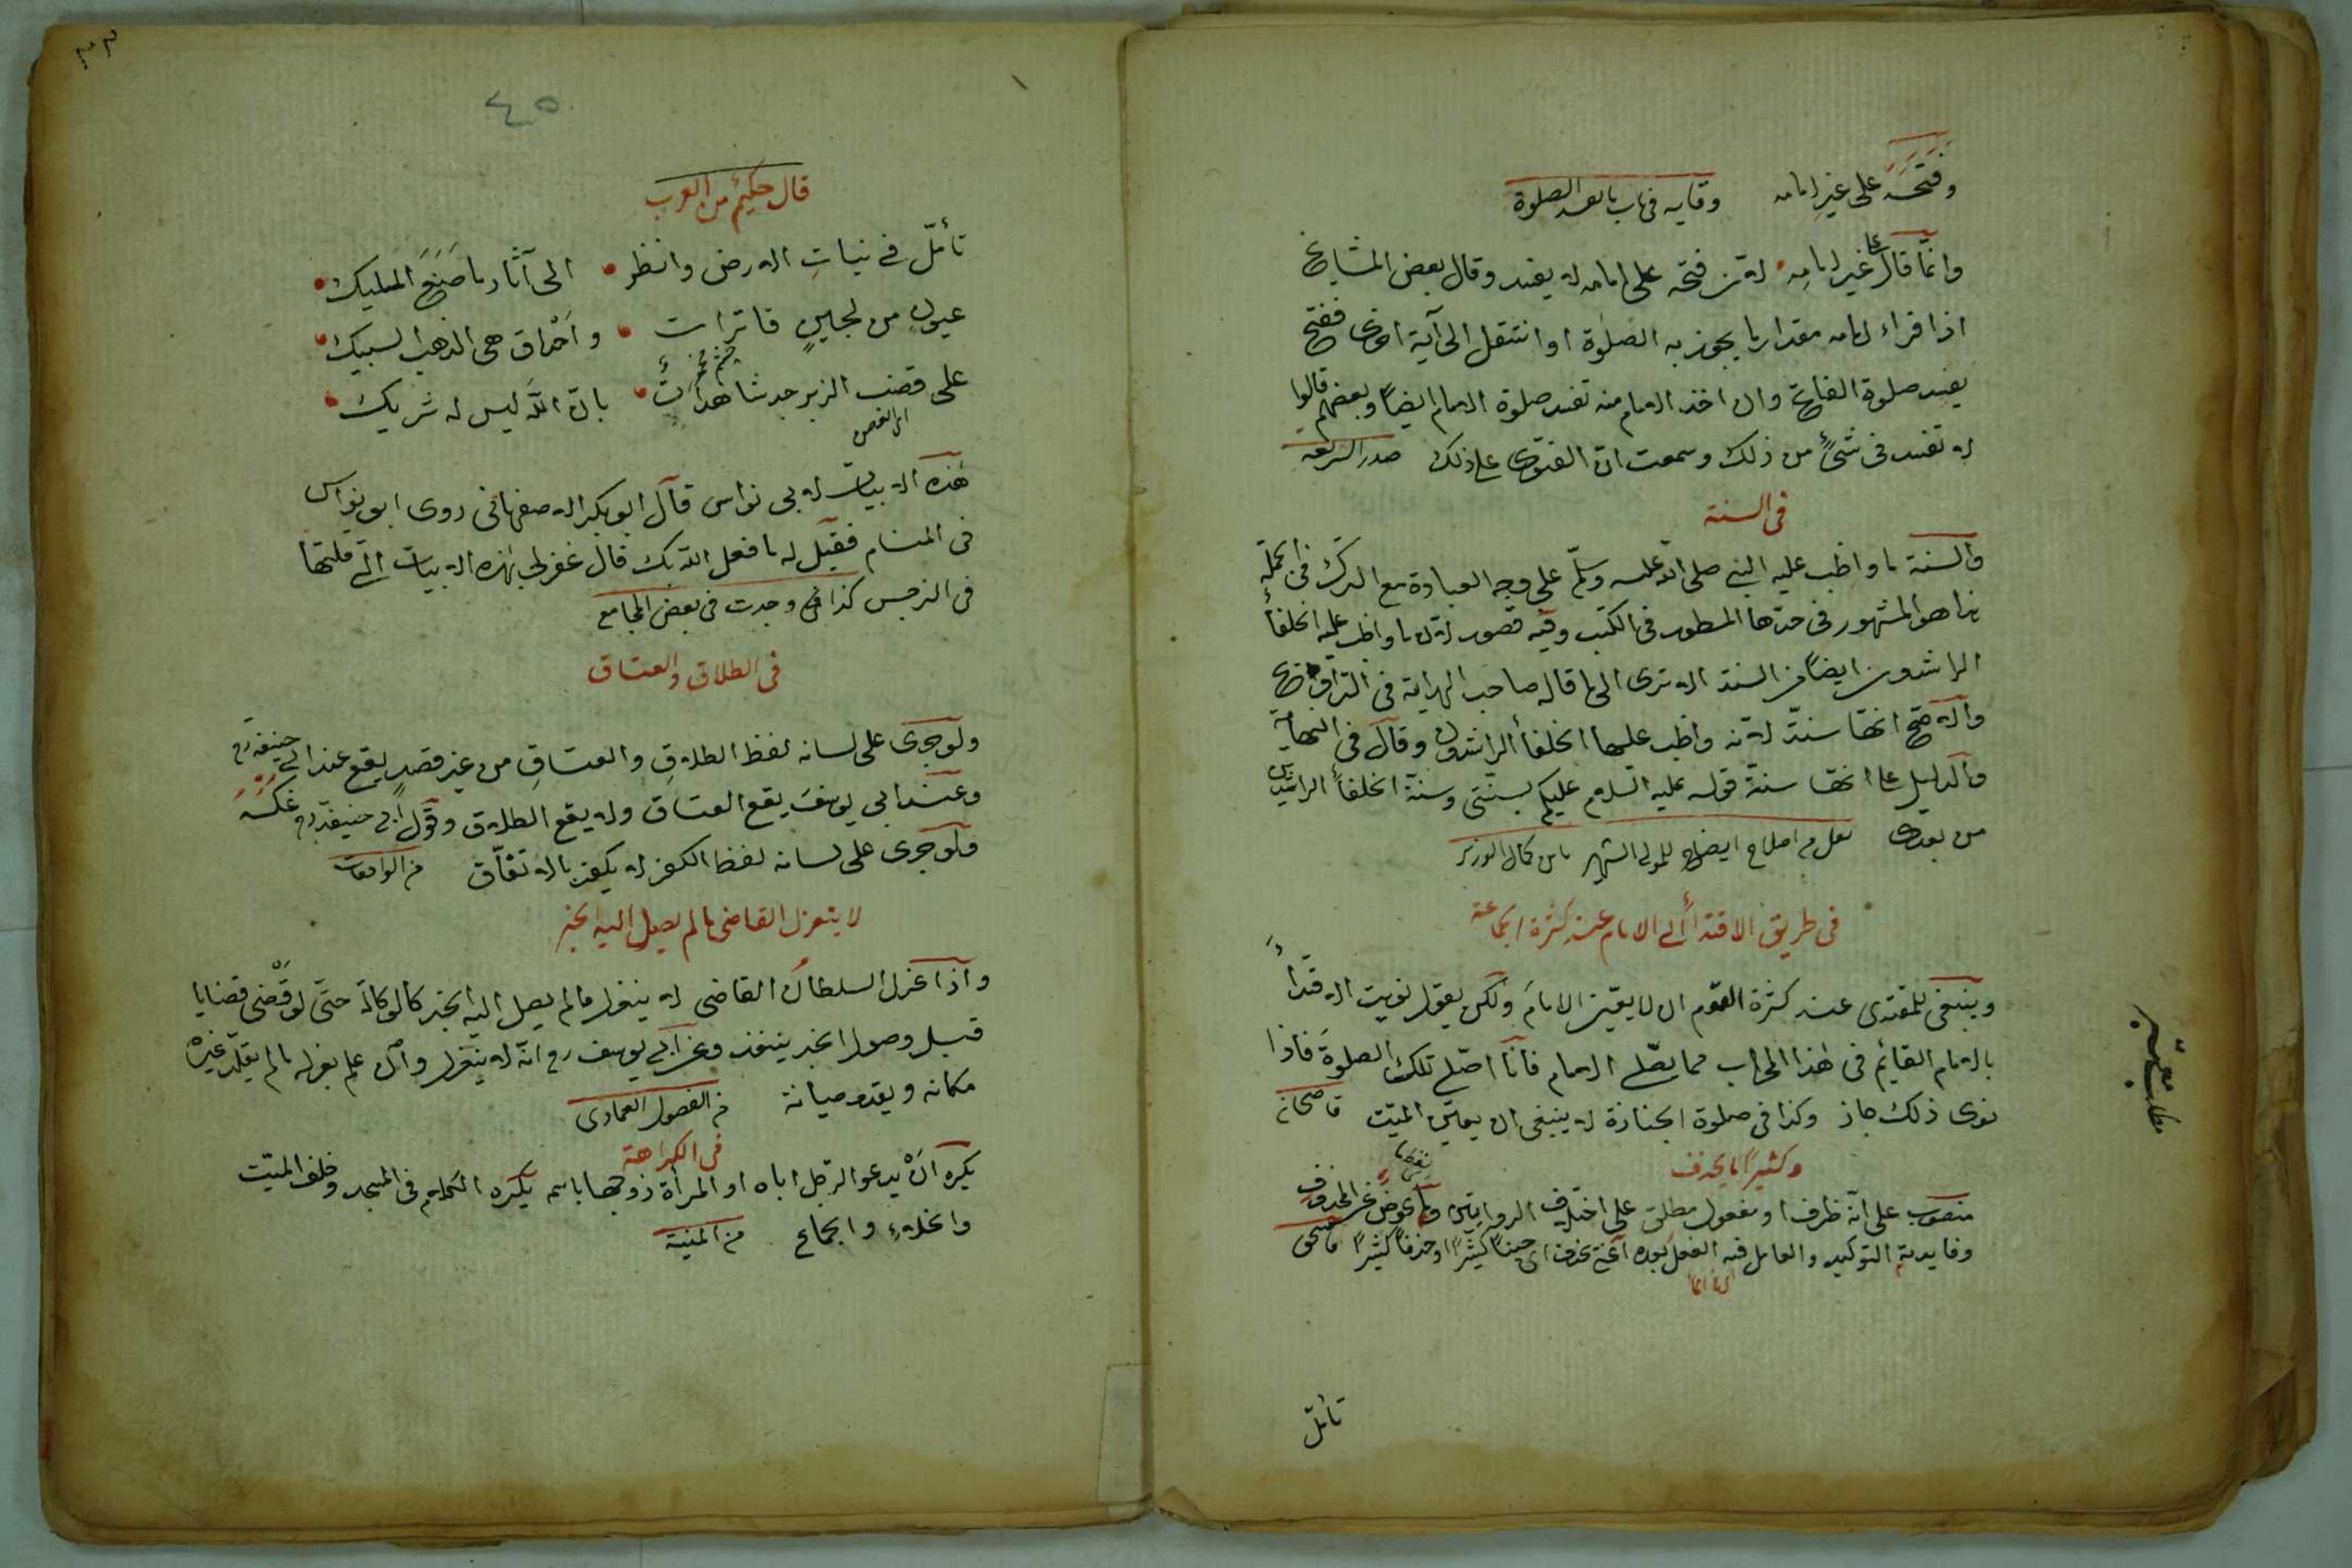 وفتحه على غير امامه وقايه فى باب ما يفسد الصلوة
وانما قال على غير امامه لانّ فتحه على امامه لا يفسد وقال بعض المشايخ
اذا قراء امامه مقدار ما يجوز به الصلوة او انتقل الى آية اخرى ففتح
يفسد صلوة الفاتح وان اخذ الامام منه تفسد صلوة الامام ايضاً وبعضهم قالوا
لا تفسد فى شئ من ذلك وسمعت ان الفتوى على ذلك صدر الشريعه
فى السنة
والسنة ما واظب عليه النبي صلى الله عليه وسلّم على وجه العبادة مع الترك فى الجملة
هذا هو المشهور فى حدّها المسطور فى الكتب وفيه قصور لانّ ما واظب عليه الخلفاء
الراشدون ايضاً من السنة الا ترى الى ما قاله صاحب الهداية فى التراويح
والاصح انها سنّة لانه واظب عليها الخلفاء الراشدون وقال فى النهاية
والدليل على انها سنة قوله عليه السلام عليكم بسنّتى وسنة الخلفاء الراشدين
من بعدى نقل من اصلاح ايضاح للمولى الشهير بابن كمال الوزير
فى طريق الاقتداء الى الامام عند كثرة الجماعة
وينبغى للمقتدى عند كثرة القوم ان لا يعيّن الامام ولكن يقول نويت الاقتداء
بالامام القائم فى هذا المحراب مما يصلّى الامام فانا اصلّى تلك الصلوة فاذا
نوى ذلك جاز وكذا فى صلوة الجنازة لا ينبغى ان يعيّن الميّت قاضيخان
وكثيراً ما يحذف
منصوب على انه ظرف او مفعول مطلق على اختلاف الروايتين وما عوض عن المحذوف
لفظا
وفايدته التوكيد والعامل فيه الفعل بعده اعنى يحذف اى حيناً كثيراً او حذفاً كثيراً
تأمّل
٤٥
قال حكيم من العرب
تأمّل فى نبات الارض وانظر الى آثار ما صنع المليك
عيون من لجين فاترات واحداق هى الذهب السبيك
على قضب الزبرجد شاهدات بان الله ليس له شريك
هذه الابيات لابى نواس قال ابو بكر الاصفهانى روى ابو نواس
فى المنام فقيل له ما فعل الله بك قال غفر لى بهذه الابيات التى قلتها
فى النرجس كذا وجدت فى بعض المجامع
فى الطلاق والعتاق
ولو جرى على لسانه لفظ الطلاق والعتاق من غير قصد يقع عند ابى حنيفه رح
وعند ابى يوسف يقع العتاق ولا يقع الطلاق وقول ابى حنيفة رح عكسه
ولو جرى على لسانه لفظ الكفر لا يكفر بالاتفاق من الواقعات
لا ينعزل القاضى ما لم يصل اليه الخبر
واذا عزل السلطان القاضى لا ينعزل ما لم يصل اليه الخبر كالوكالة حتى لو قضى قضايا
قبل وصول الخبر ينفذ وعن ابى يوسف رح انه لا ينعزل وان علم بعزله ما لم يقلّد غيره
مكانه ويقدم صيانة من الفصول العمادى
فى الكراهة
يكره ان يدعو الرجل اباه او المرأة زوجها باسمه يكره الكلام فى المسجد وخلف الميّت
والخلاء والجماع من المنية